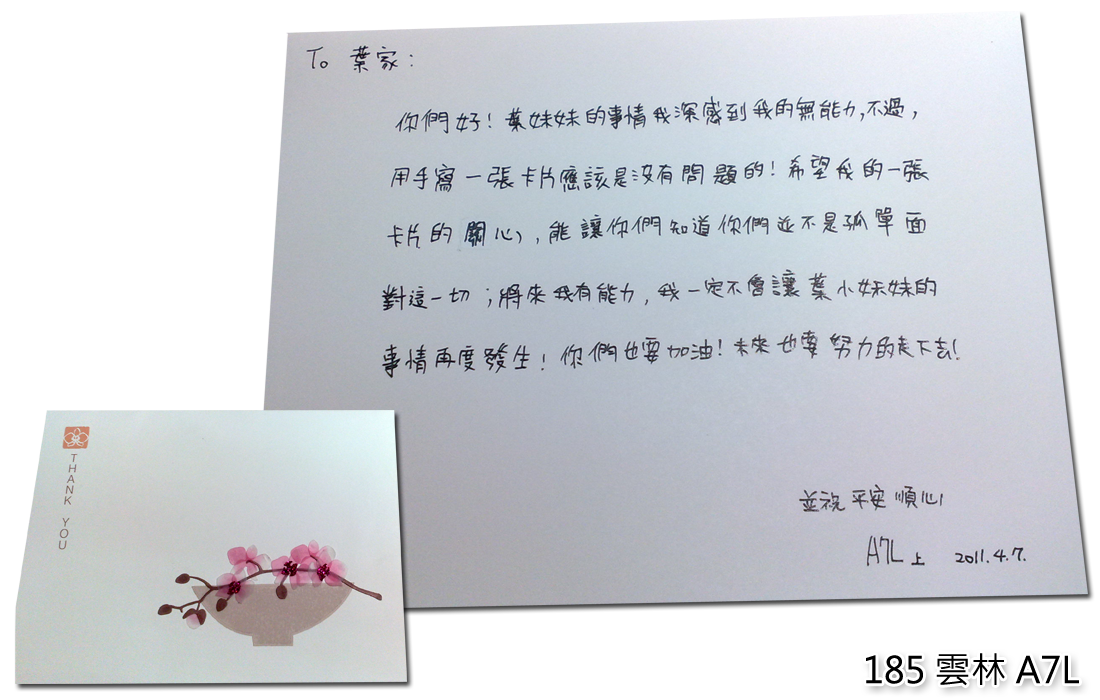 To 葉家：
你們好！葉妹妹的事情我深感到我的無能力，不過，
用手寫一張卡片應該是沒有問題的！希望我的一張
卡片的關心，能讓你們知道你們並不是孤單面
對這一切；將來我有能力，我一定不會讓葉小妹妹的
事情再度發生！你們也要加油！未來也要努力的走下去！
並祝 平安順心
A7L 上 2011.4.7.
THANK YOU
185 雲林 A7L